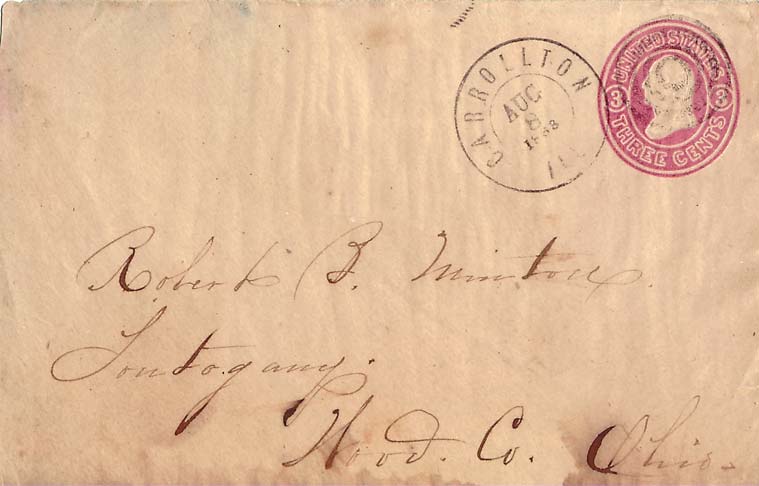 CARROLLTON
AUG
8
1863
ILL
UNITED STATES
3 3
THREE CENTS
Robert B.
Tontogany.
Wood. Co. Ohio-